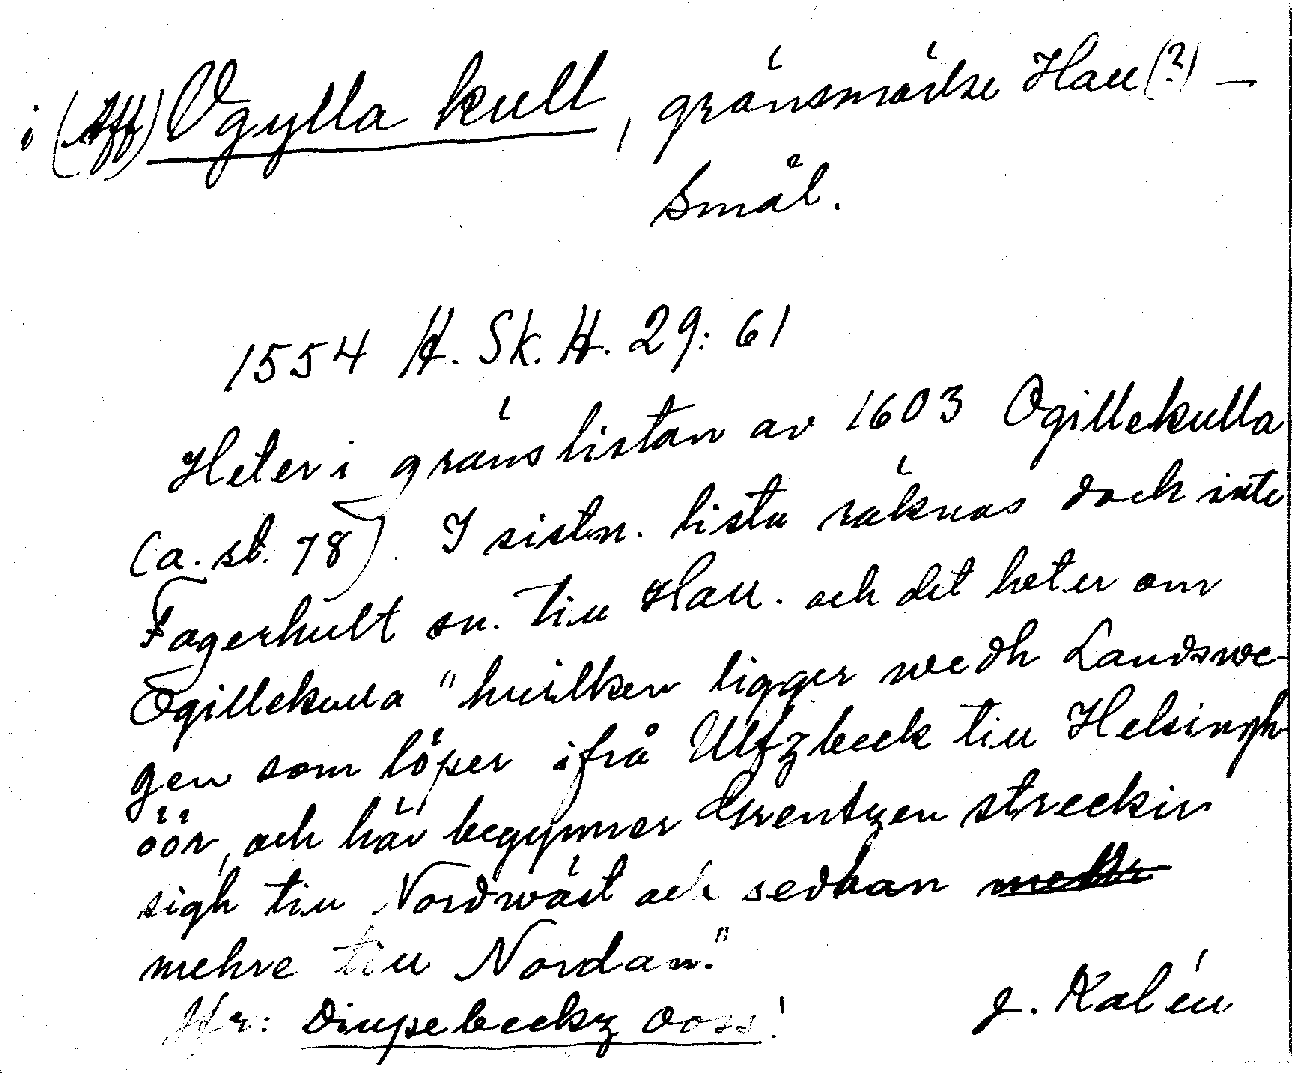 i (Aff) Ogylla kull, gränsmärke Hall (?) –
Smål.
1554 H. Sk. H. 29: 61
Heter i gränslistan av 1603 Ogillekulla
(a. st. 78). I sistn. lista räknas dock inte
Fagerhult sn. till Hall. och det heter om
Ogillekulla "huilken ligger wedh Landswe-
gen som löper ifrå Ulfzbeck till Helsingh-
öör, och här begynner Grentzen streckir
sigh till Nordwäst och sedhan
mehre till Nordan."
Jfr: Diupebeckz ooss! J. Kalén